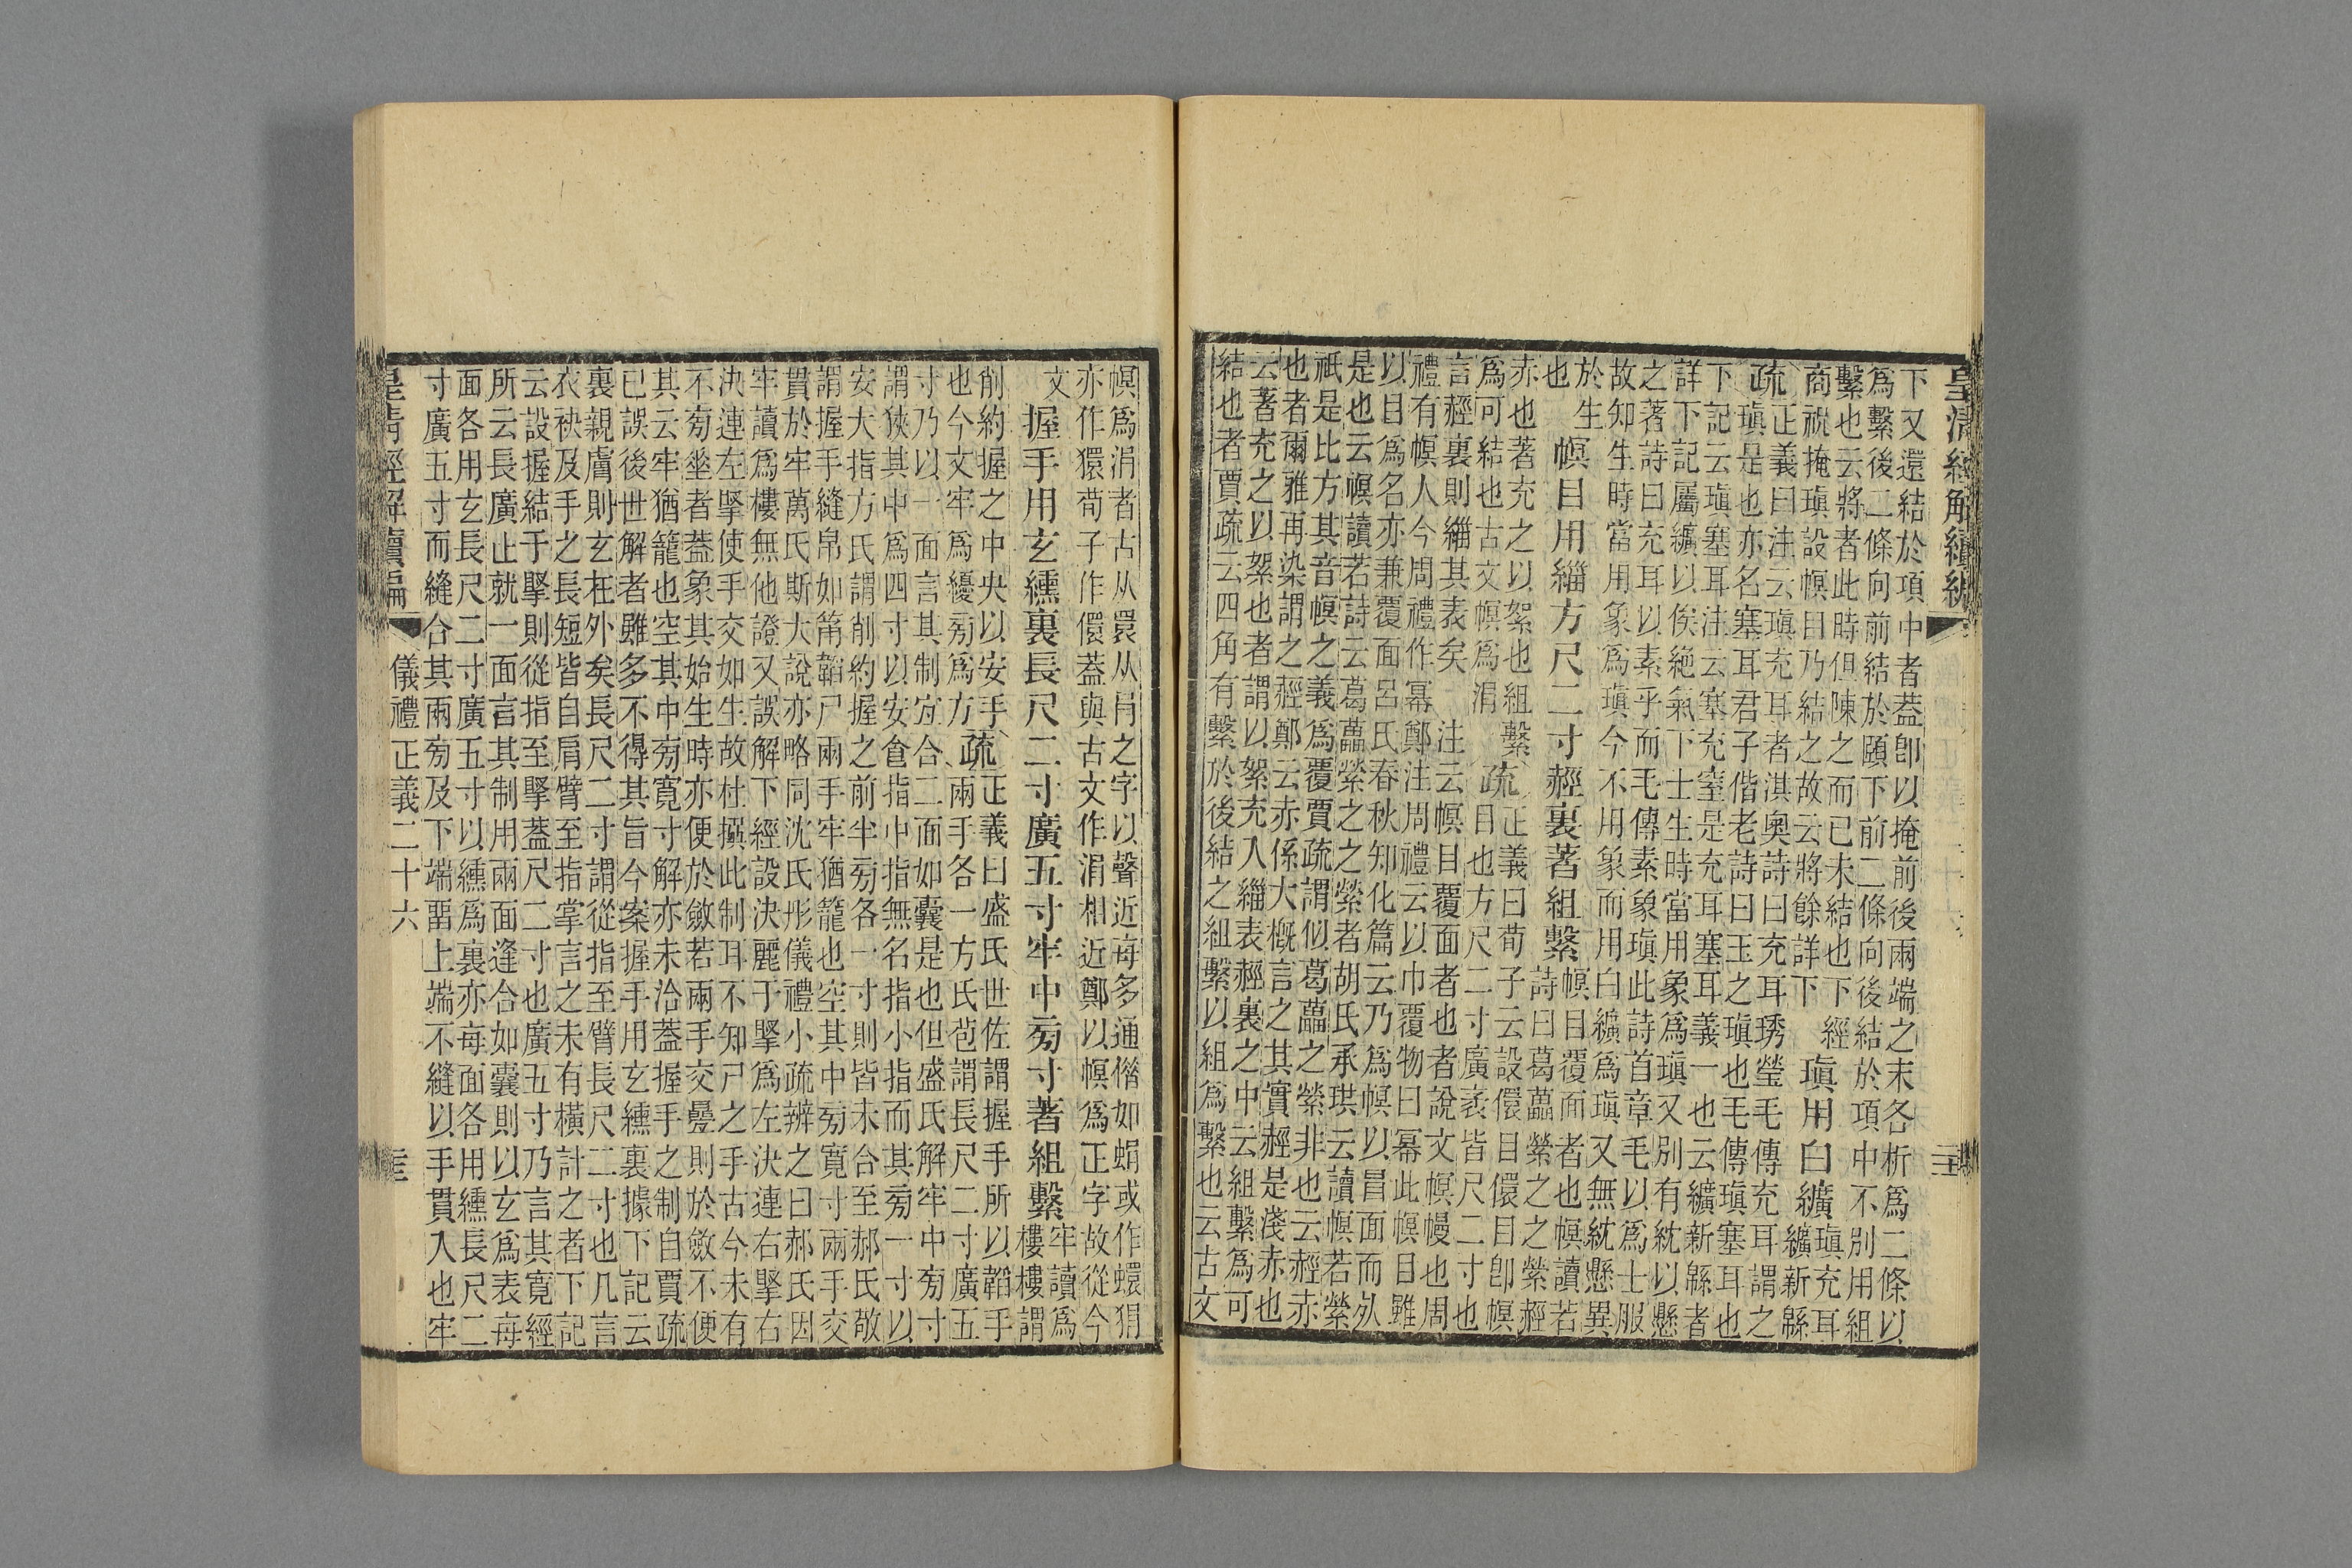 皇清經解續編
下又還結於項中者蓋卽以掩前後兩端之末各析爲二條以
爲繫後二條向前結於頤下前二條向後結於項中不別用組
繫也云將者此時但陳之而已未結也下經
商祝掩瑱設幎目乃結之故云將餘詳下
瑱用白纊
瑱充耳
纊新緜
疏
正義曰注云瑱充耳者淇奧詩曰充耳琇瑩毛傳充耳謂之
瑱是也亦名塞耳君子偕老詩曰玉之瑱也毛傳瑱塞耳也
下記云瑱塞耳注云塞充窒是充耳塞耳義一也云纊新緜者
詳下記屬纊以俟絶氣下士生時當用象爲瑱又別有紞以懸
之著詩曰充耳以素乎而毛傳素象瑱此詩首章毛以爲士服
故知生時當用象爲瑱今不用象而用白纊爲瑱又無紞懸異
於生
也
幎目用緇方尺二寸䞓裏著組繫
幎目覆面者也幎讀若
詩曰葛藟縈之之縈䞓
赤也著充之以絮也組繫
爲可結也古文幎爲涓
疏
正義曰荀子云設儇目儇目卽幎
目也方尺二寸廣袤皆尺二寸也
言䞓裏則緇其表矣 注云幎目覆面者也者說文幎幔也周
禮有幎人今周禮作冪鄭注周禮云以巾覆物曰冪此幎目雖
以目爲名亦兼覆面呂氏春秋知化篇云乃爲幎以冒面而㱙
是也云幎讀若詩云葛藟縈之之縈者胡氏承珙云讀幎若縈
祇是比方其音幎之義爲覆賈疏謂似葛藟之縈非也云䞓赤
也者爾雅再染謂之䞓鄭云赤係大槪言之其實䞓是淺赤也
云著充之以絮也者謂以絮充入緇表䞓裏之中云組繫爲可
結也者賈疏云四角有繫於後結之組繫以組爲繫也云古文
幎爲涓者古从睘从肙之字以聲近每多通僣如蜎或作蠉狷
亦作獧荀子作儇蓋與古文作涓相近鄭以幎爲正字故從今
文
握手用玄纁裏長尺二寸廣五寸牢中旁寸著組繫
牢讀爲
樓樓謂
削約握之中央以安手
也今文牢爲纋旁爲方
疏
正義曰盛氏世佐謂握手所以韜手
兩手各一方氏苞謂長尺二寸廣五
寸乃以一面言其制宜合二面如囊是也但盛氏解牢中旁寸
謂狹其中爲四寸以安食指中指無名指小指而其旁一寸以
安大指方氏謂削約握之前半旁各一寸則皆未合至郝氏敬
謂握手縫帛如筩韜尸兩手牢猶籠也空其中旁寬寸兩手交
貫於牢萬氏斯大說亦略同沈氏彤儀禮小疏辨之曰郝氏因
牢讀爲樓無他證又誤解下經設決麗于掔爲左決連右掔右
決連左掔使手交如生故杜撰此制耳不知尸之手古今未有
不旁垂者蓋象其始生時亦便於斂若兩手交疊則於斂不便
其云牢猶籠也空其中旁寬寸解亦未洽蓋握手之制自賈疏
已誤後世解者雖多不得其旨今案握手用玄纁裏據下記云
裏親膚則玄在外矣長尺二寸謂從指至臂長尺二寸也凡言
衣袂及手之長短皆自肩臂至指掌言之未有橫計之者下記
云設握結于掔則從指至掔蓋尺二寸也廣五寸乃言其寬經
所云長廣止就一面言其制用兩面逢合如囊則以玄爲表每
面各用玄長尺二寸廣五寸以纁爲裏亦每面各用纁長尺二
寸廣五寸而縫合其兩旁及下端畱上端不縫以手貫入也牢
皇清經解續編
儀禮正義二十六